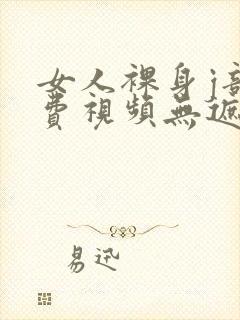 女人裸身j
費視頻無遮
易迅